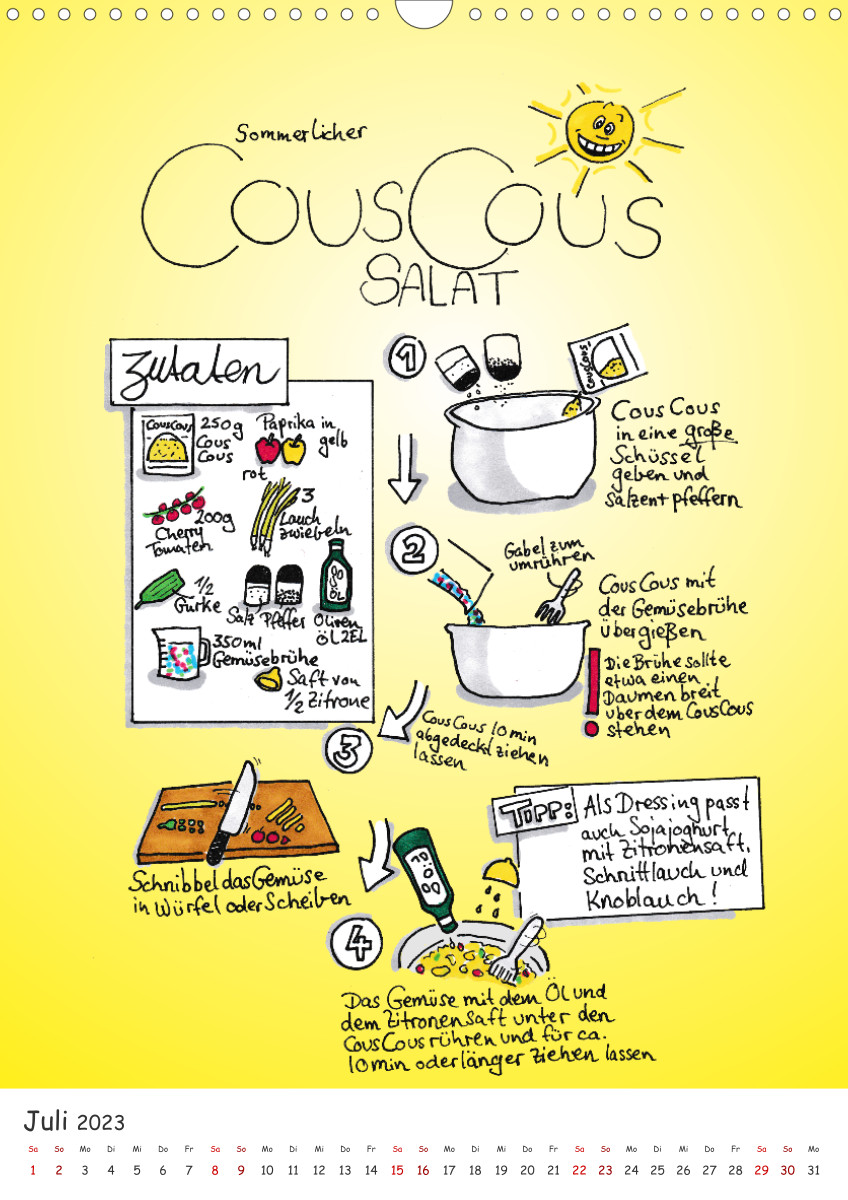 Sommerlicher
CousCous
SALAT
Zutaten
CousCous
250g
Cous
Cous
Paprika in
gelb
rot
200g
Cherry
Tomaten
3
Lauch
zwiebeln
1/2
Gurke
Salz
Pfeffer
Oliven
ÖL 2EL
350ml
Gemüsebrühe
Saft von
1/2 Zitrone
1
CousCous
CousCous
in eine große
Schüssel
geben und
Salzen+pfeffern
2
Gabel zum
umrühren
CousCous mit
der Gemüsebrühe
übergießen
! Die Brühe sollte
etwa einen
Daumen breit
über dem CousCous
stehen
3
CousCous 10min
abgedeckt ziehen
lassen
Schnibbel das Gemüse
in Würfel oder Scheiben
Tipp:
Als Dressing passt
auch Sojajoghurt
mit Zitronensaft,
Schnittlauch und
Knoblauch!
4
Das Gemüse mit dem Öl und
dem Zitronensaft unter den
CousCous rühren und für ca.
10min oder länger ziehen lassen
Juli 2023
Sa So Mo Di Mi Do Fr Sa So Mo Di Mi Do Fr Sa So Mo Di Mi Do Fr Sa So Mo Di Mi Do Fr Sa So Mo
1 2 3 4 5 6 7 8 9 10 11 12 13 14 15 16 17 18 19 20 21 22 23 24 25 26 27 28 29 30 31